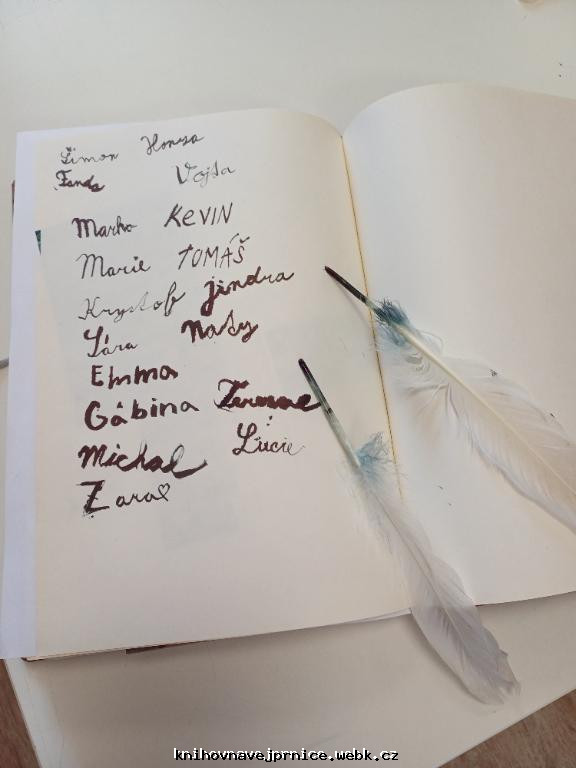 Šimon Honza
Fanda Vojta
Marko KEVIN
Marie TOMÁŠ
Kryštof jindra
Sára Naty
Emma
Gábina
Michal Lucie
Zara
knihovnavejprnice.webk.cz